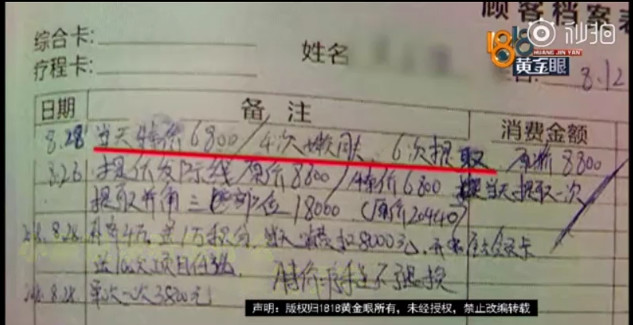 顾客档案表
秒拍
1818
HUANG JIN YAN
黄金眼
综合卡:
姓名
疗程卡:
8.12
日期 备注 消费金额
8.28 当天特价6800/4次 6次提取 原价8800
8.26 提价发际线 原价8800/特价6800 当天提取一次
提取 三 部位 18000 (原价20440)
8.28. 4万, 送1万积分, 当天消费扣8000元,
送10次项目任 特价 不退换
8.28. 单次一次3800元
声明:版权归1818黄金眼所有,未经授权,禁止改编转载